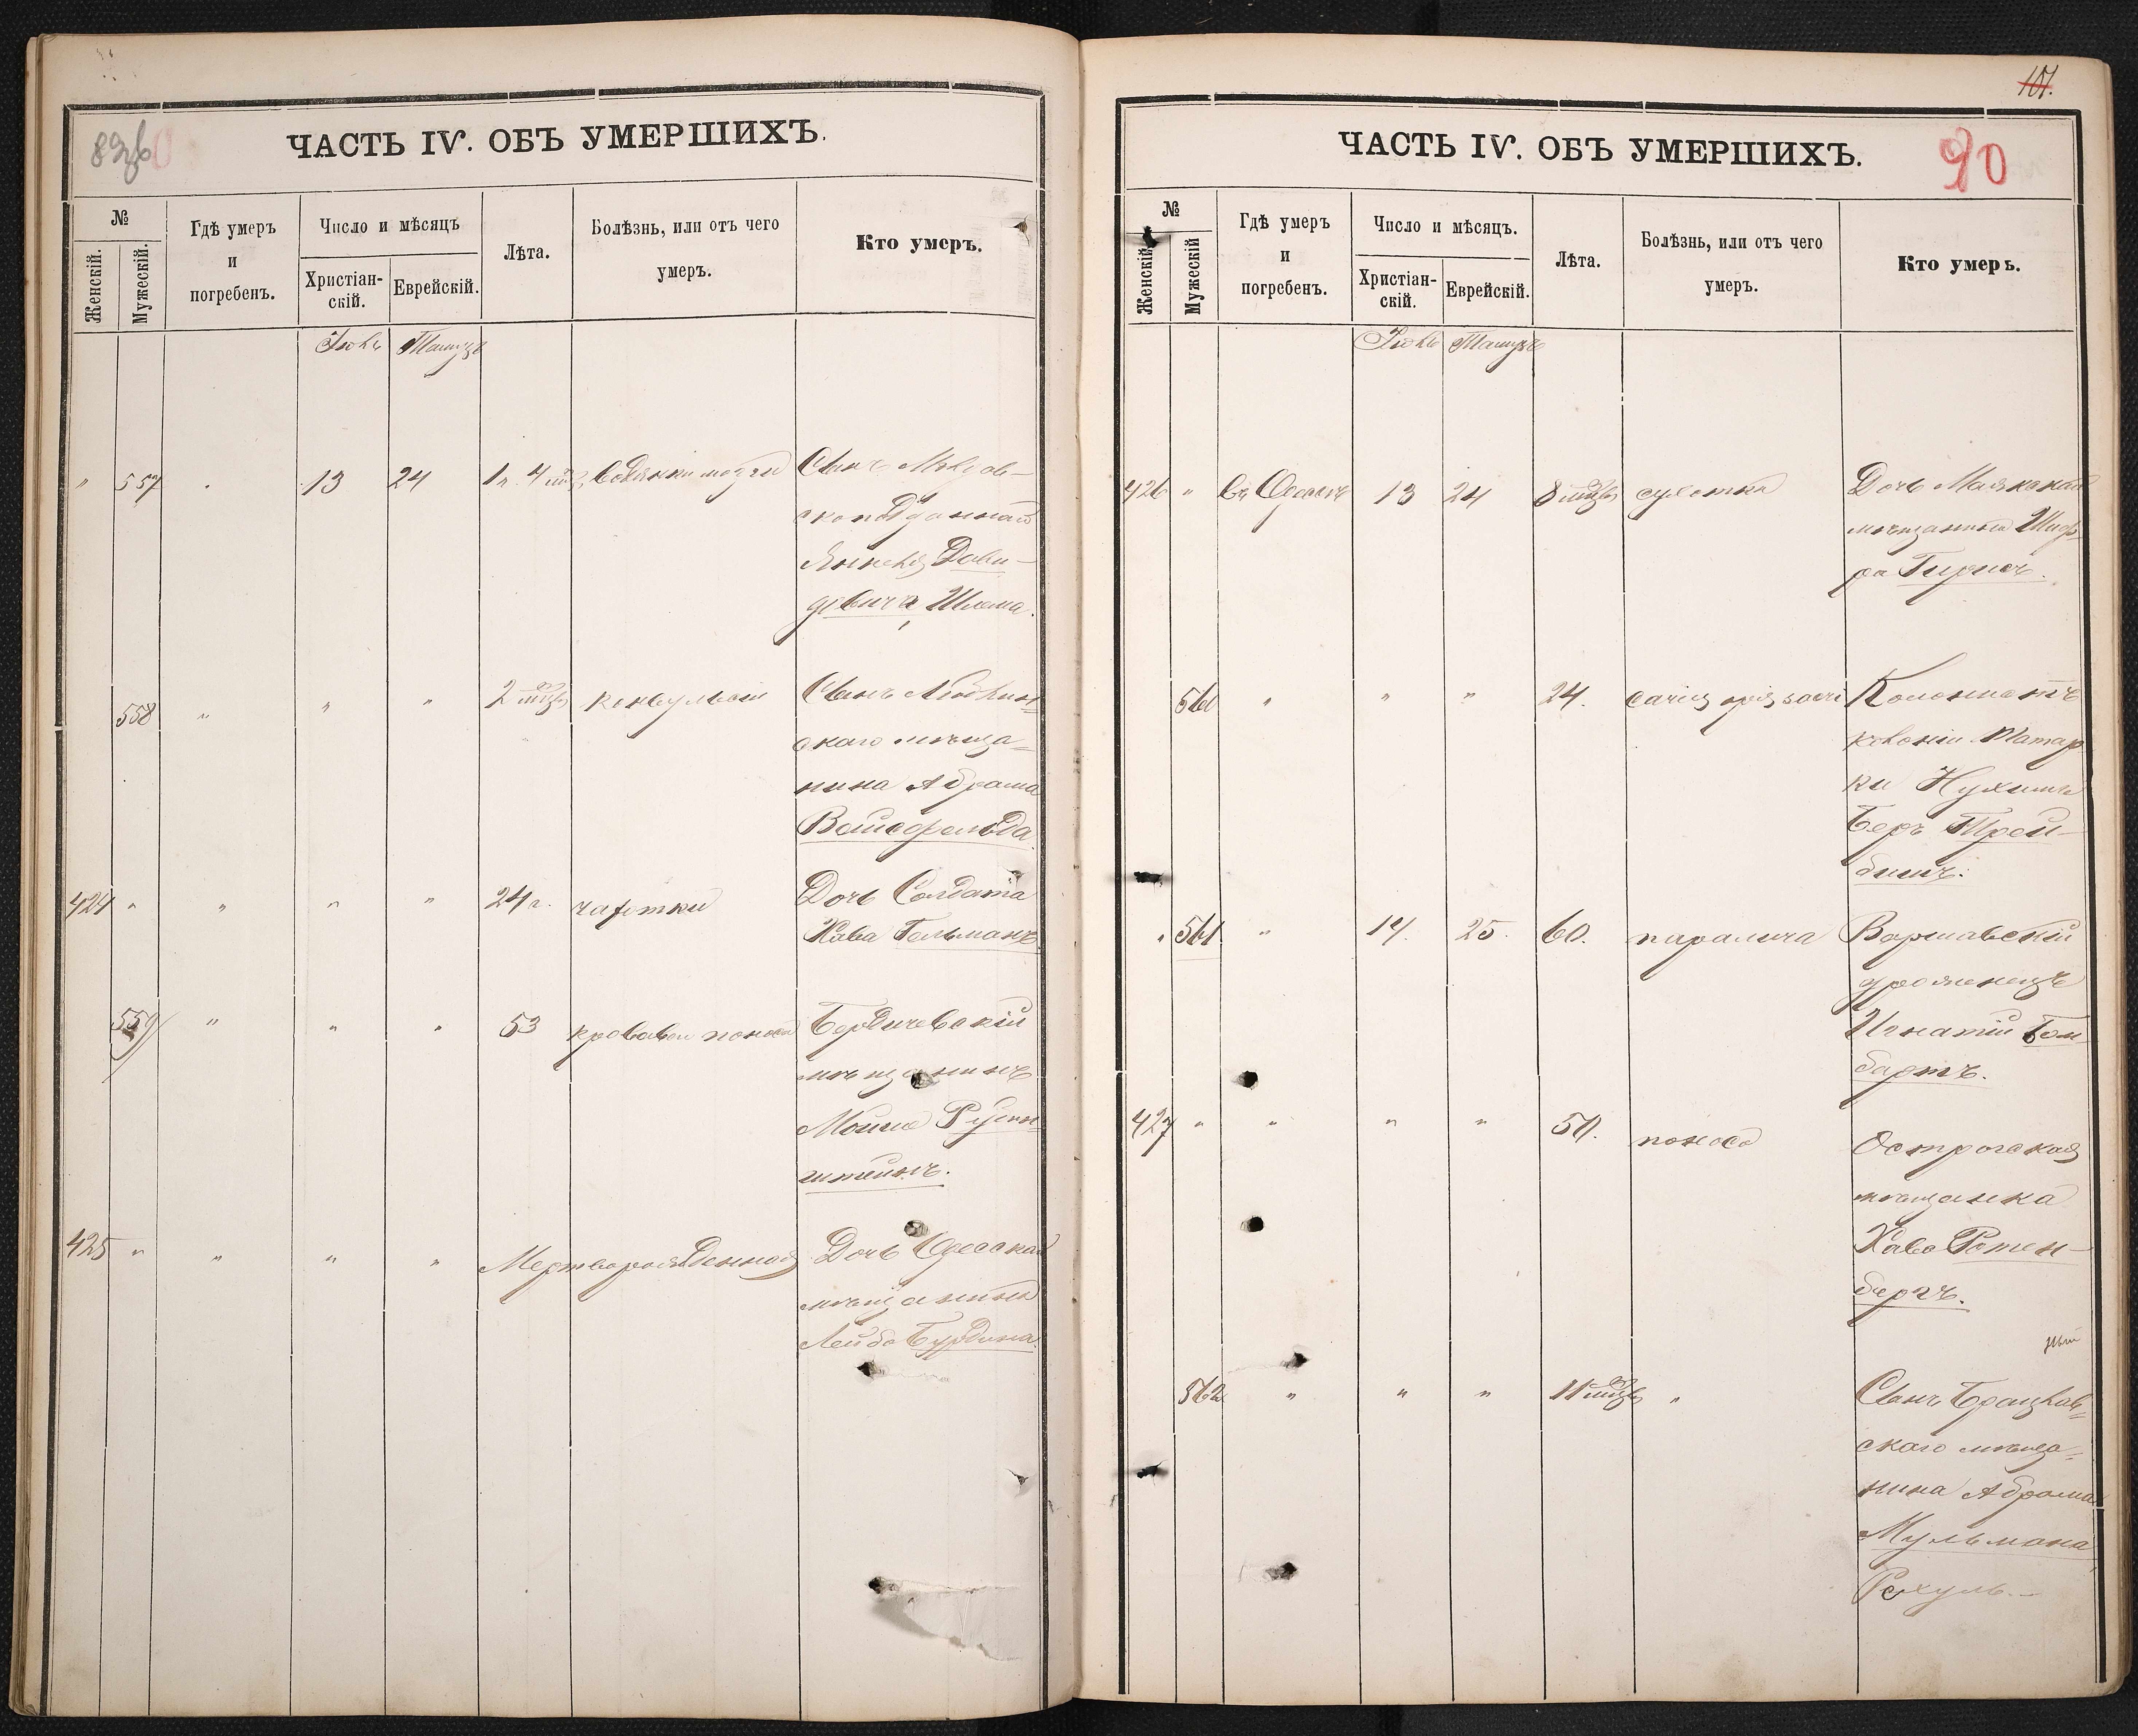 ЧАСТЬ IV. ОБЪ УМЕРШИХЪ.
№
Женскій.
Мужескій.
Гдѣ умеръ
и
погребенъ.
Число и мѣсяцъ
Христіан-
скій.
Еврейскій.
Лѣта.
Болѣзнь, или отъ чего
умеръ.
Кто умеръ.
Іюль Тамузъ
" 557 13 24 1 г. 4 Сынъ
Давы-
довича, Шлема.
558 " " " 2 мѣс. конвульсій Сынъ
скаго мѣща-
нина Абрама
Вейсфельда.
424 " " " " 24 г. чахотки Дочь Солдата
Хава Гельманъ
559 " " " 53 кроваваго поноса Бердичевскій
мѣщанинъ
Мошко
штейнъ.
425 " " " " Мертворожденная Дочь Одесскаго
мѣщанина
Лейба Бурдина.
101.
ЧАСТЬ IV. ОБЪ УМЕРШИХЪ. 90
№
Женскій.
Мужескій
Гдѣ умеръ
и
погребенъ.
Число и мѣсяцъ.
Христіан-
скій.
Еврейскій.
Лѣта.
Болѣзнь, или отъ чего
умеръ.
Кто умеръ.
Іюль Тамузъ
426 " въ Одессѣ 13 24 8 мѣс. сухотка Дочь Маякскаго
мѣщанина Шиф-
ра
560 " " " 24. caries Колонистъ
колоніи Татар-
ки Нухимъ
Беръ Трей-
561 " 14. 25. 60. паралича Варшавскій
уроженецъ
Игнатій Гом-
бартъ.
427 " " " " 50. поноса Острогская
мѣщанка
Хава Ротен-
бергъ.
562 " " " 11 мѣс. " Сынъ Брацлав-
скаго мѣща-
нина Абрама
Мульмана
Рахуль.